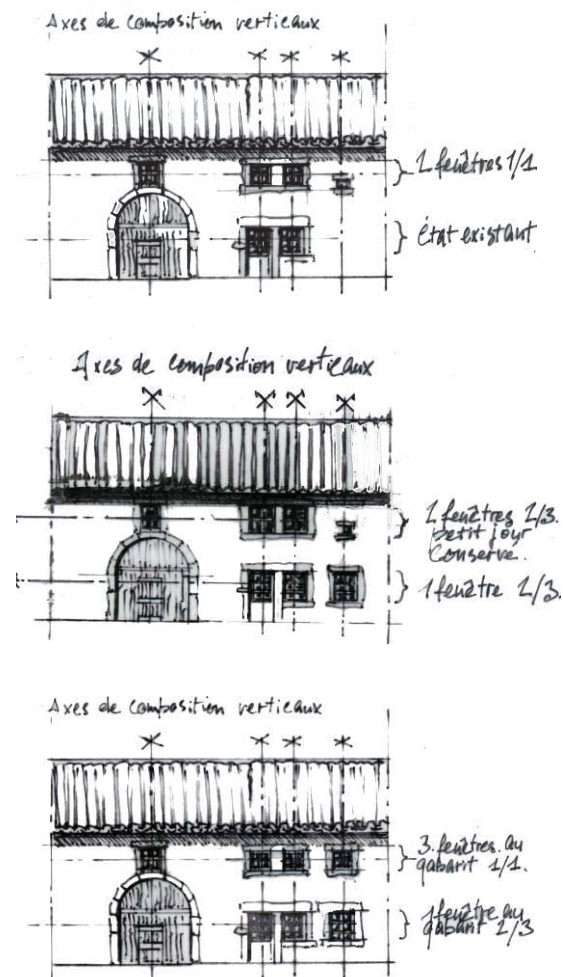 Axes de composition verticaux
2 fenêtres 1/1
État existant
Axes de composition verticaux
2 fenêtres 2/3.
petit jour
conservé.
1 fenêtre 2/3.
Axes de composition verticaux
3 fenêtres au
gabarit 1/1.
1 fenêtre au
gabarit 2/3